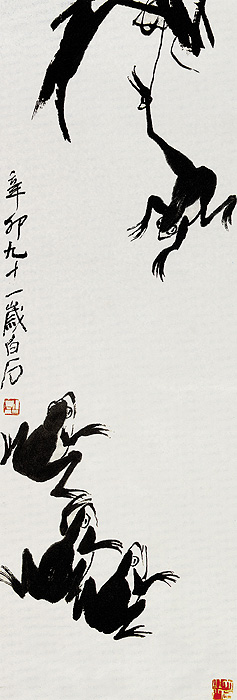 辛卯九十一歲白石